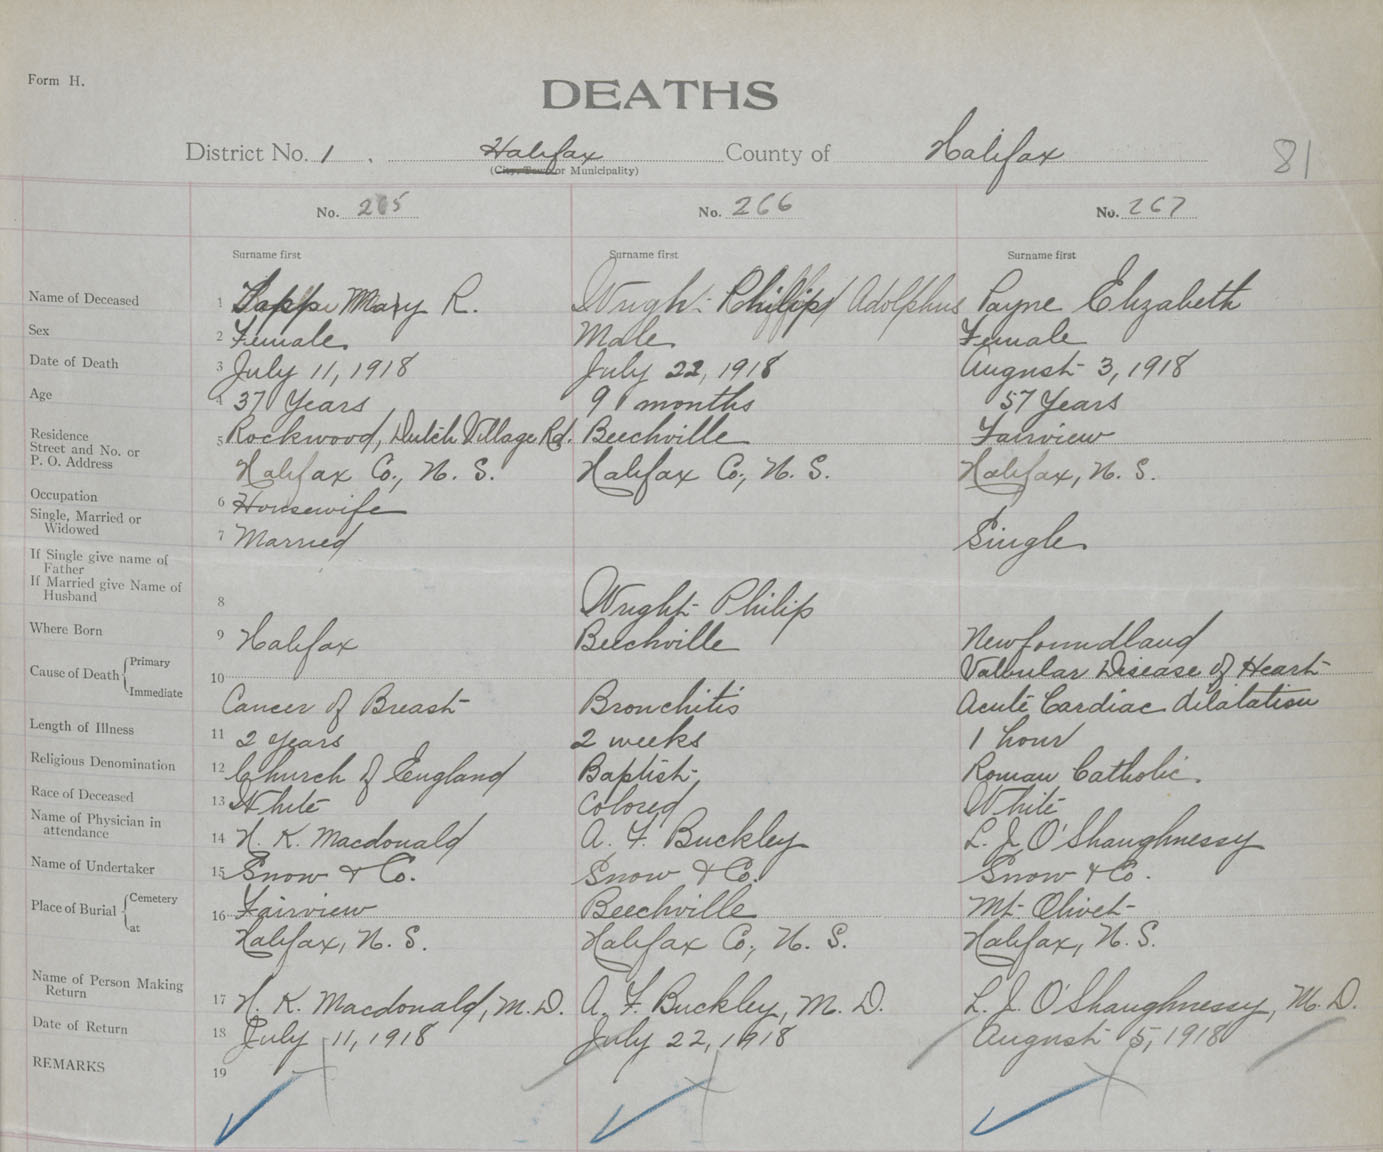 Form H.
DEATHS
District No. 1. Halifax County of Halifax 81
(City, Town or Municipality)
No. 265 No. 266 No. 267
Surname first Surname first Surname first
Name of Deceased 1 Mary R. Wright Philip Adolphus Payne Elizabeth
Sex 2 Female Male Female
Date of Death 3 July 11, 1918 July 22, 1918 August 3, 1918
Age 4 37 Years 9 months 57 Years
Residence
Street and No. or 5 Rockwood, Dutch Village Rd. Beechville Fairview
P. O. Address Halifax Co., N. S. Halifax Co., N. S. Halifax, N. S.
Occupation 6 Housewife
Single, Married or
Widowed 7 Married Single
If Single give name of
Father
If Married give Name of
Husband 8 Wright Philip
Where Born 9 Halifax Beechville Newfoundland
Cause of Death Primary 10 Valvular Disease of Heart
Immediate Cancer of Breast Bronchitis Acute Cardiac dilatation
Length of Illness 11 2 Years 2 weeks 1 hour
Religious Denomination 12 Church of England Baptist Roman Catholic.
Race of Deceased 13 White Colored White
Name of Physician in
attendance 14 H. K. Macdonald A. F. Buckley L. J. O'Shaughnessy
Name of Undertaker 15 Snow & Co. Snow & Co. Snow & Co.
Place of Burial Cemetery 16 Fairview Beechville Mt. Olivet
at Halifax, N. S. Halifax Co., N. S. Halifax, N. S.
Name of Person Making
Return 17 H. K. Macdonald, M. D. A. F. Buckley, M. D. L. J. O'Shaughnessy, M. D.
Date of Return 18 July 11, 1918 July 22, 1918 August 5, 1918
REMARKS 19